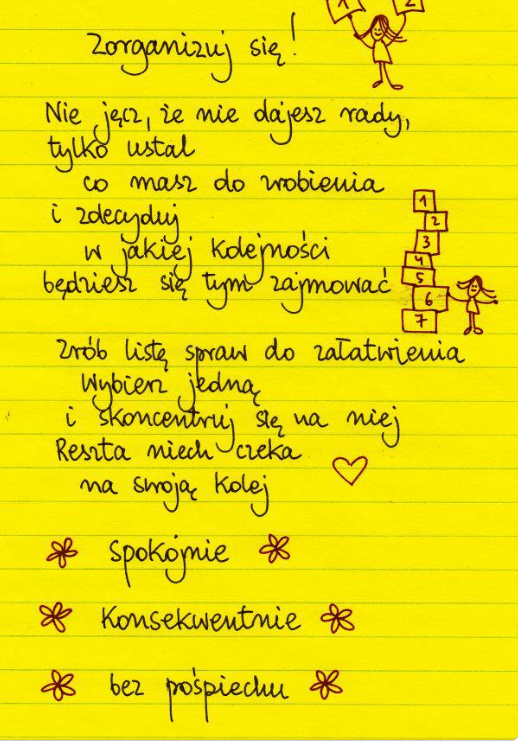 1 2
zorganizuj się!
Nie jęcz, że nie dajesz rady,
tylko ustal
co masz do zrobienia
i zdecyduj
w jakiej kolejności
będziesz się tym zajmować
1
2
3
4
5
6
7
Zrób listę spraw do załatwienia
Wybierz jedną
i skoncentruj się na niej
Reszta niech czeka
na swoją kolej
spokojnie
Konsekwentnie
bez pośpiechu